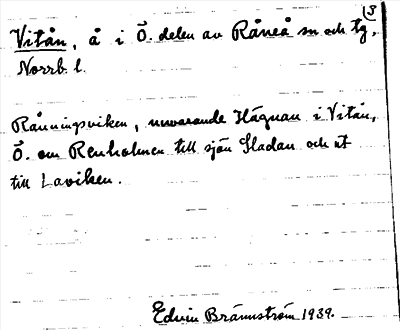 3
Vitån, å i Ö. delen av Råneå sn och tg,
Norrb. l.
Rånningsviken, nuvarande Hägnan i Vitån,
Ö. om Renholmen till sjön Sladan och ut
till Laviken.
Edvin Brännström 1939.